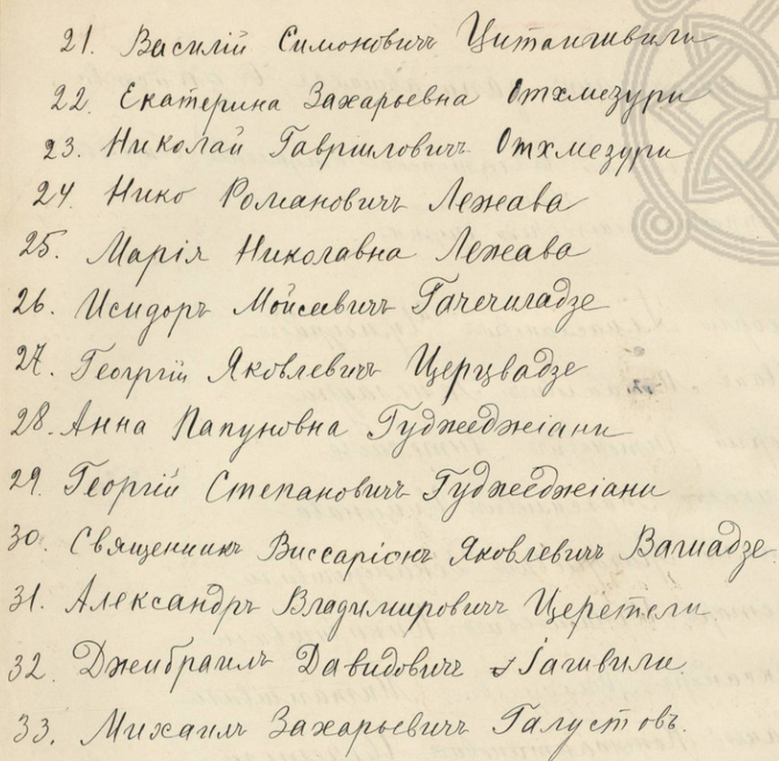 21. Василій Симоновичъ Цитаишвили
22. Екатерина Захарьевна Отхмезури
23. Николай Гавріиловичъ Отхмезури
24. Нико Романовичъ Лежава
25. Марія Николавна Лежава
26. Исидоръ Мойсеевичъ Гачечиладзе
27. Георгій Яковлевичъ Церцвадзе
28. Анна Папуновна Гуджеджіани
29. Георгій Степановичъ Гуджеджіани
30. Священникъ Виссаріонъ Яковлевичъ Вашадзе
31. Александръ Владимировичъ Церетели
32. Джибраилъ Давидовичъ
33. Михаилъ Захарьевичъ Галустовъ.